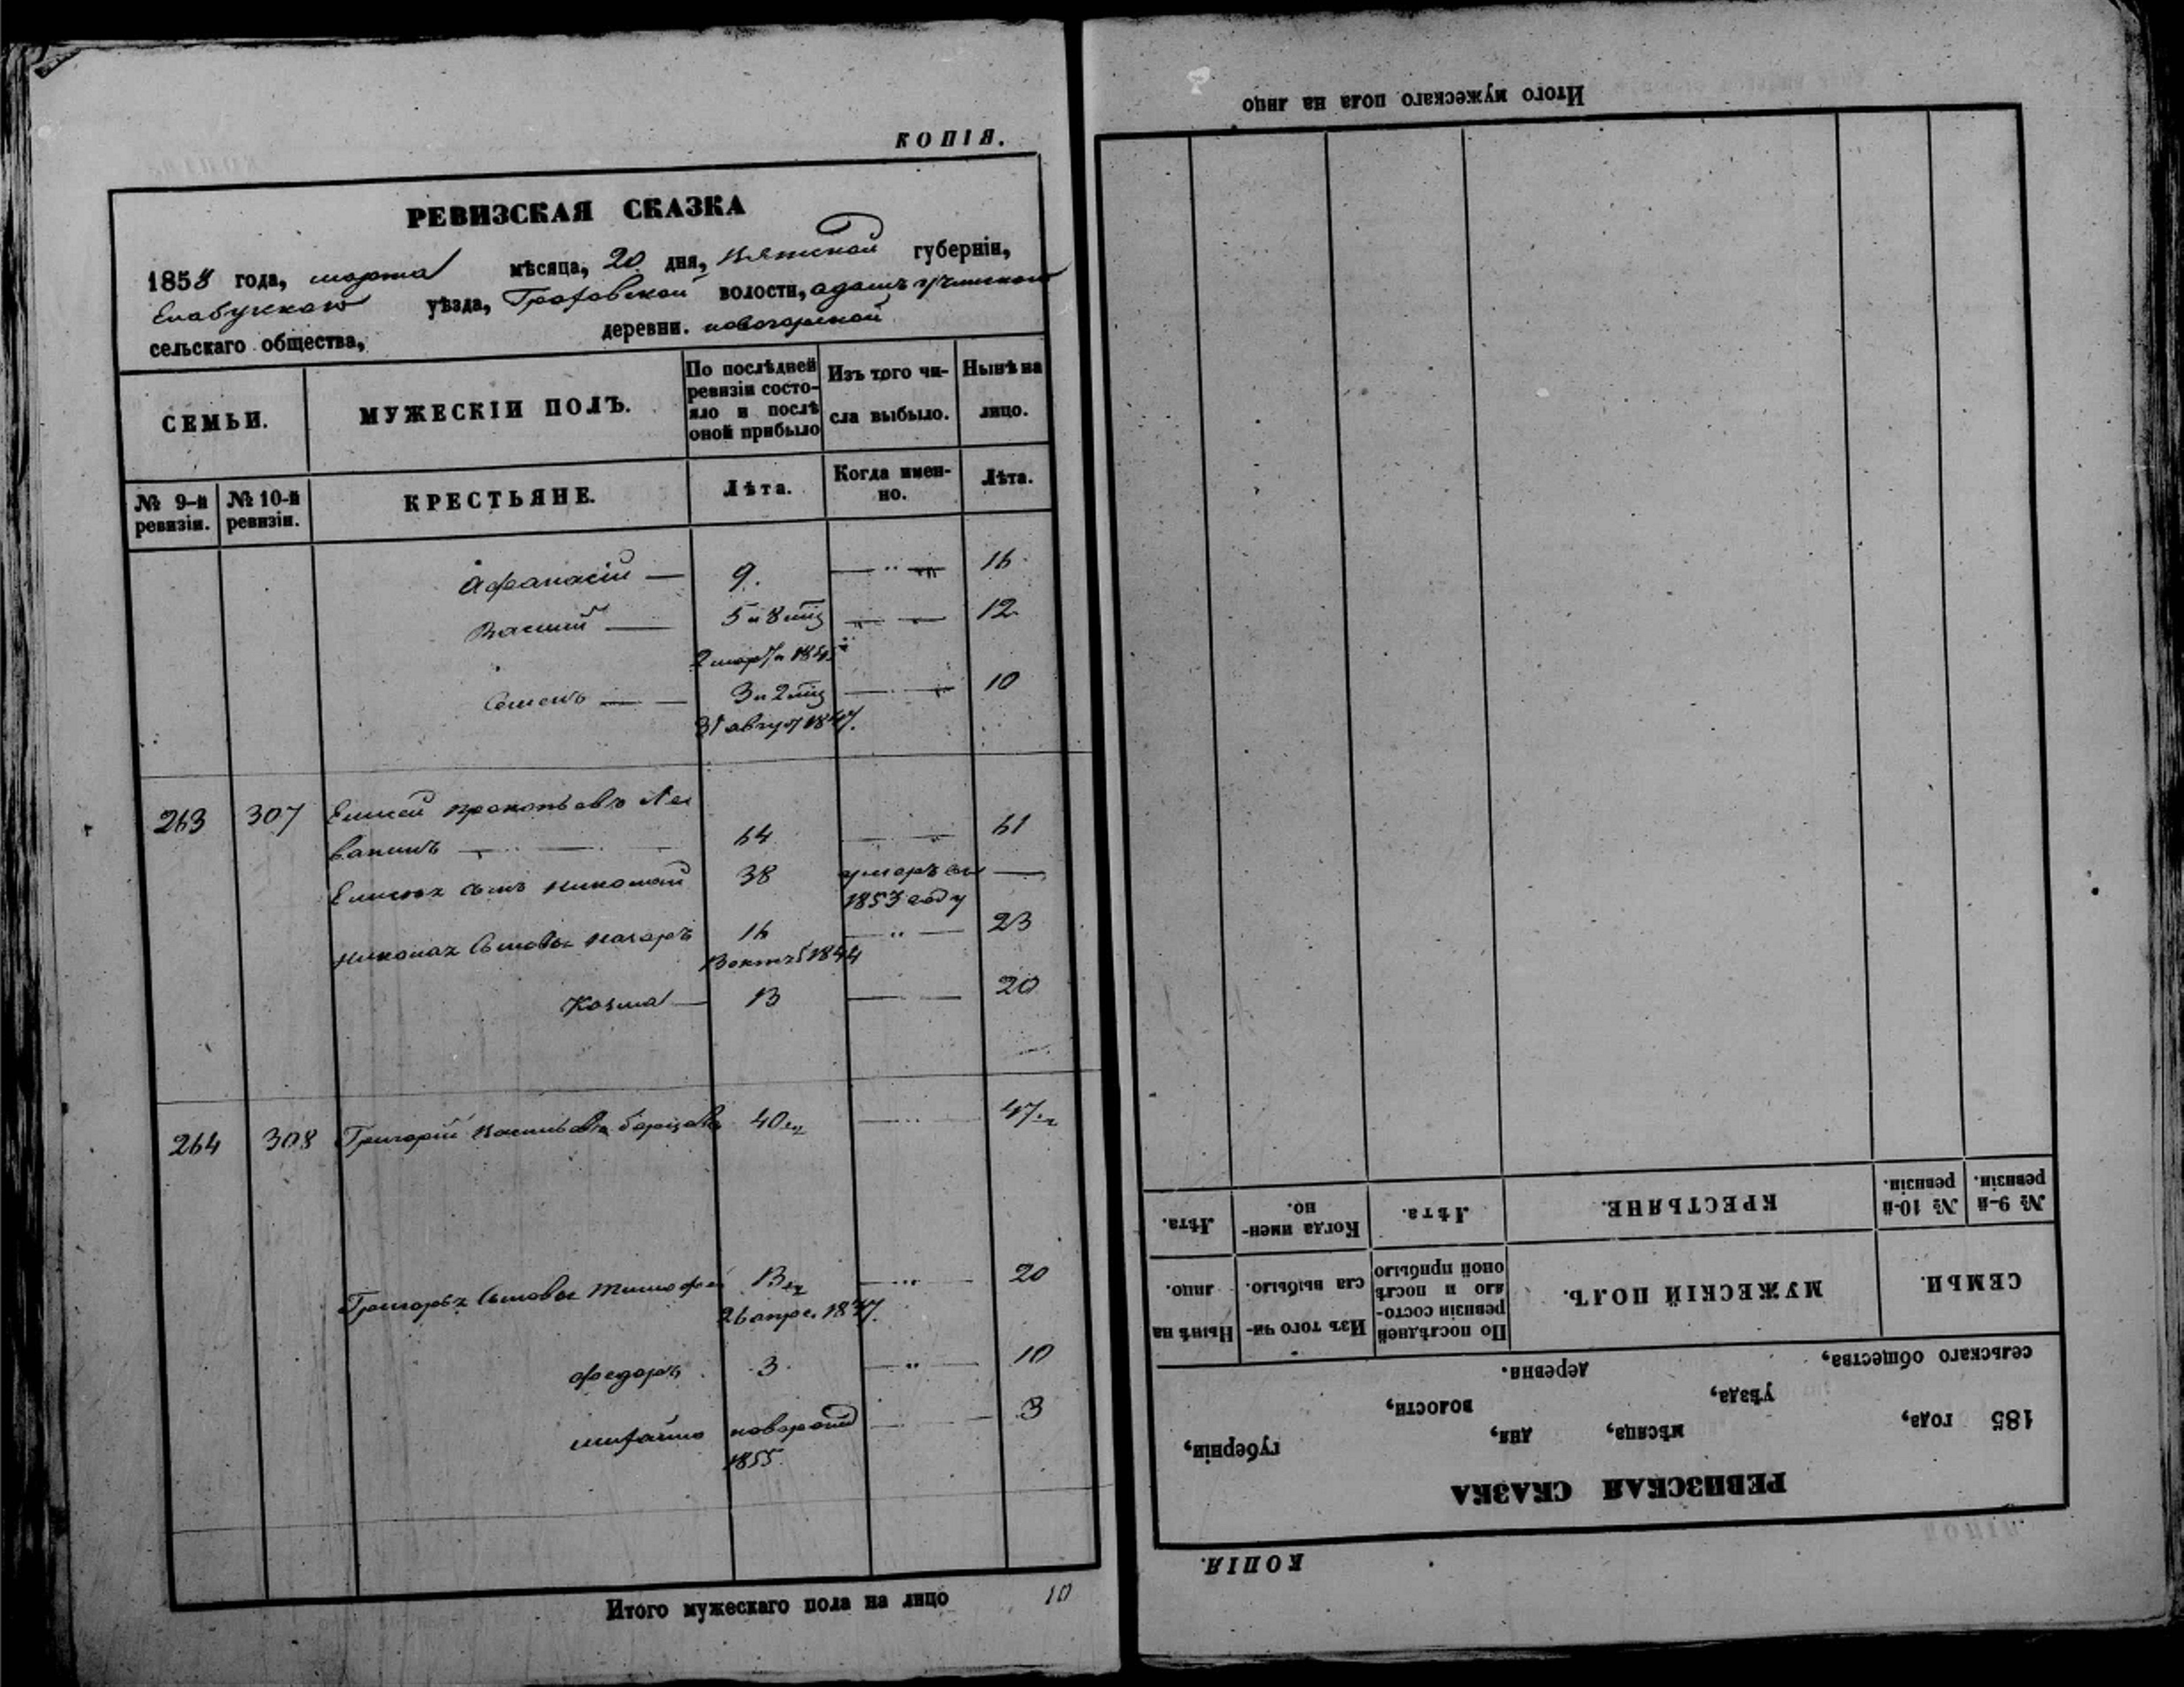 КОПІЯ.
РЕВИЗСКАЯ СКАЗКА
1858 года, марта мѣсяца, 20 дня, Вятской губерніи,
Елабужскаго уѣзда, Граховской волости,
сельскаго общества, деревни. новогорской
СЕМЬИ.
МУЖЕСКІЙ ПОЛЪ.
По послѣдней ревизіи состо-
яло и послѣ оной прибыло
Изъ того чи-
сла выбыло.
Нынѣ на лицо.
№ 9-й ревизіи.
№ 10-й ревизіи.
КРЕСТЬЯНЕ.
Лѣта.
Когда имен-
но.
Лѣта.
Афанасій — 9. — " — 16
Василий — 5 и 8 мц — " — 12
2 мар 1845
Семенъ — 3 и 2 мц — " — 10
31 авгус 1847.
263 307 Елисей Прокопьевъ Ле
вашинъ — 64 — " — 61
Елисея сынъ Николай 38 умеръ въ —
1853 году
Николая Сыновья Назаръ 16 — " — 23
13 октяб 1844
Козма — 13 — — 20
264 308 Григорій Васильевъ 40 — " — 47
Григорья Сыновья Тимофей 13 — " — 20
26 апре. 1847.
Федоръ 3 — " — 10
Михайло новорож — 3
1855
Итого мужескаго пола на лицо 10
КОПІЯ.
РЕВИЗСКАЯ СКАЗКА
185 года, мѣсяца, дня, губерніи,
уѣзда, волости,
сельскаго общества, деревни.
СЕМЬИ.
МУЖЕСКІЙ ПОЛЪ.
По послѣдней ревизіи состо-
яло и послѣ оной прибыло
Изъ того чи-
сла выбыло.
Нынѣ на лицо.
№ 9-й ревизіи.
№ 10-й ревизіи.
КРЕСТЬЯНЕ.
Лѣта.
Когда имен-
но.
Лѣта.
Итого мужескаго пола на лицо